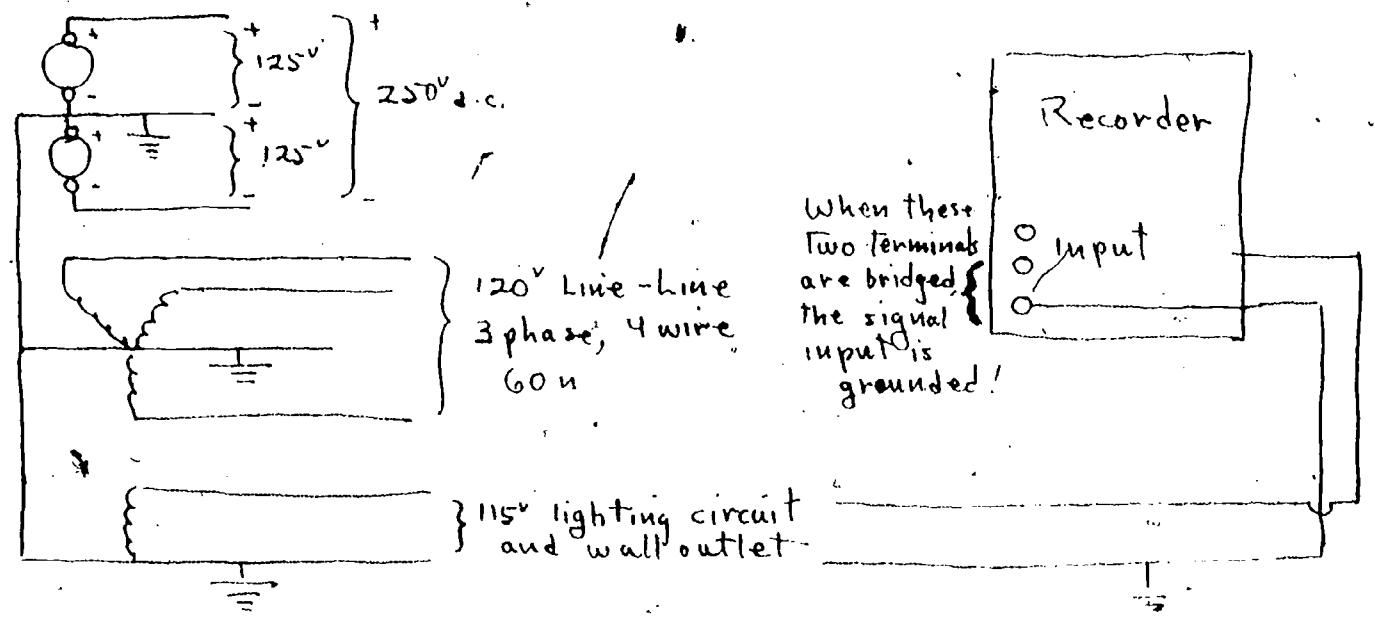 +
+
125ᵛ
-
+
-
+
125ᵛ
-
+
-
+
250ᵛ d.c.
-
120ᵛ Line-Line
3 phase, 4 wire
60 ~
115ᵛ lighting circuit
and wall outlet
Recorder
Input
When these
Two terminals
are bridged,
the signal
input is
grounded!